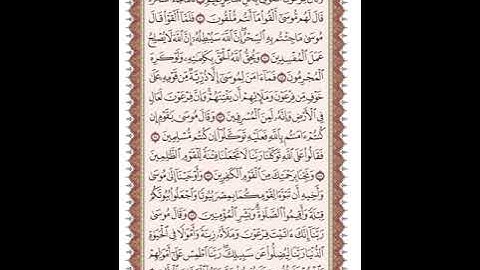 قَالَ لَهُم مُّوسَىٰٓ أَلْقُوا۟ مَآ أَنتُم مُّلْقُونَ ۝ فَلَمَّآ أَلْقَوْا۟ قَالَ
مُوسَىٰ مَا جِئْتُم بِهِ ٱلسِّحْرُ ۖ إِنَّ ٱللَّهَ سَيُبْطِلُهُۥٓ ۖ إِنَّ ٱللَّهَ لَا يُصْلِحُ
عَمَلَ ٱلْمُفْسِدِينَ ۝ وَيُحِقُّ ٱللَّهُ ٱلْحَقَّ بِكَلِمَٰتِهِۦ وَلَوْ كَرِهَ
ٱلْمُجْرِمُونَ ۝ فَمَآ ءَامَنَ لِمُوسَىٰٓ إِلَّا ذُرِّيَّةٌ مِّن قَوْمِهِۦ عَلَىٰ
خَوْفٍ مِّن فِرْعَوْنَ وَمَلَإِي۟هِمْ أَن يَفْتِنَهُمْ ۚ وَإِنَّ فِرْعَوْنَ لَعَالٍ
فِى ٱلْأَرْضِ وَإِنَّهُۥ لَمِنَ ٱلْمُسْرِفِينَ ۝ وَقَالَ مُوسَىٰ يَٰقَوْمِ إِن
كُنتُمْ ءَامَنتُم بِٱللَّهِ فَعَلَيْهِ تَوَكَّلُوٓا۟ إِن كُنتُم مُّسْلِمِينَ ۝
فَقَالُوا۟ عَلَى ٱللَّهِ تَوَكَّلْنَا رَبَّنَا لَا تَجْعَلْنَا فِتْنَةً لِّلْقَوْمِ ٱلظَّٰلِمِينَ ۝
وَنَجِّنَا بِرَحْمَتِكَ مِنَ ٱلْقَوْمِ ٱلْكَٰفِرِينَ ۝ وَأَوْحَيْنَآ إِلَىٰ مُوسَىٰ
وَأَخِيهِ أَن تَبَوَّءَا لِقَوْمِكُمَا بِمِصْرَ بُيُوتًا وَٱجْعَلُوا۟ بُيُوتَكُمْ
قِبْلَةً وَأَقِيمُوا۟ ٱلصَّلَوٰةَ ۗ وَبَشِّرِ ٱلْمُؤْمِنِينَ ۝ وَقَالَ مُوسَىٰ
رَبَّنَآ إِنَّكَ ءَاتَيْتَ فِرْعَوْنَ وَمَلَأَهُۥ زِينَةً وَأَمْوَٰلًا فِى ٱلْحَيَوٰةِ
ٱلدُّنْيَا رَبَّنَا لِيُضِلُّوا۟ عَن سَبِيلِكَ ۖ رَبَّنَا ٱطْمِسْ عَلَىٰٓ أَمْوَٰلِهِمْ